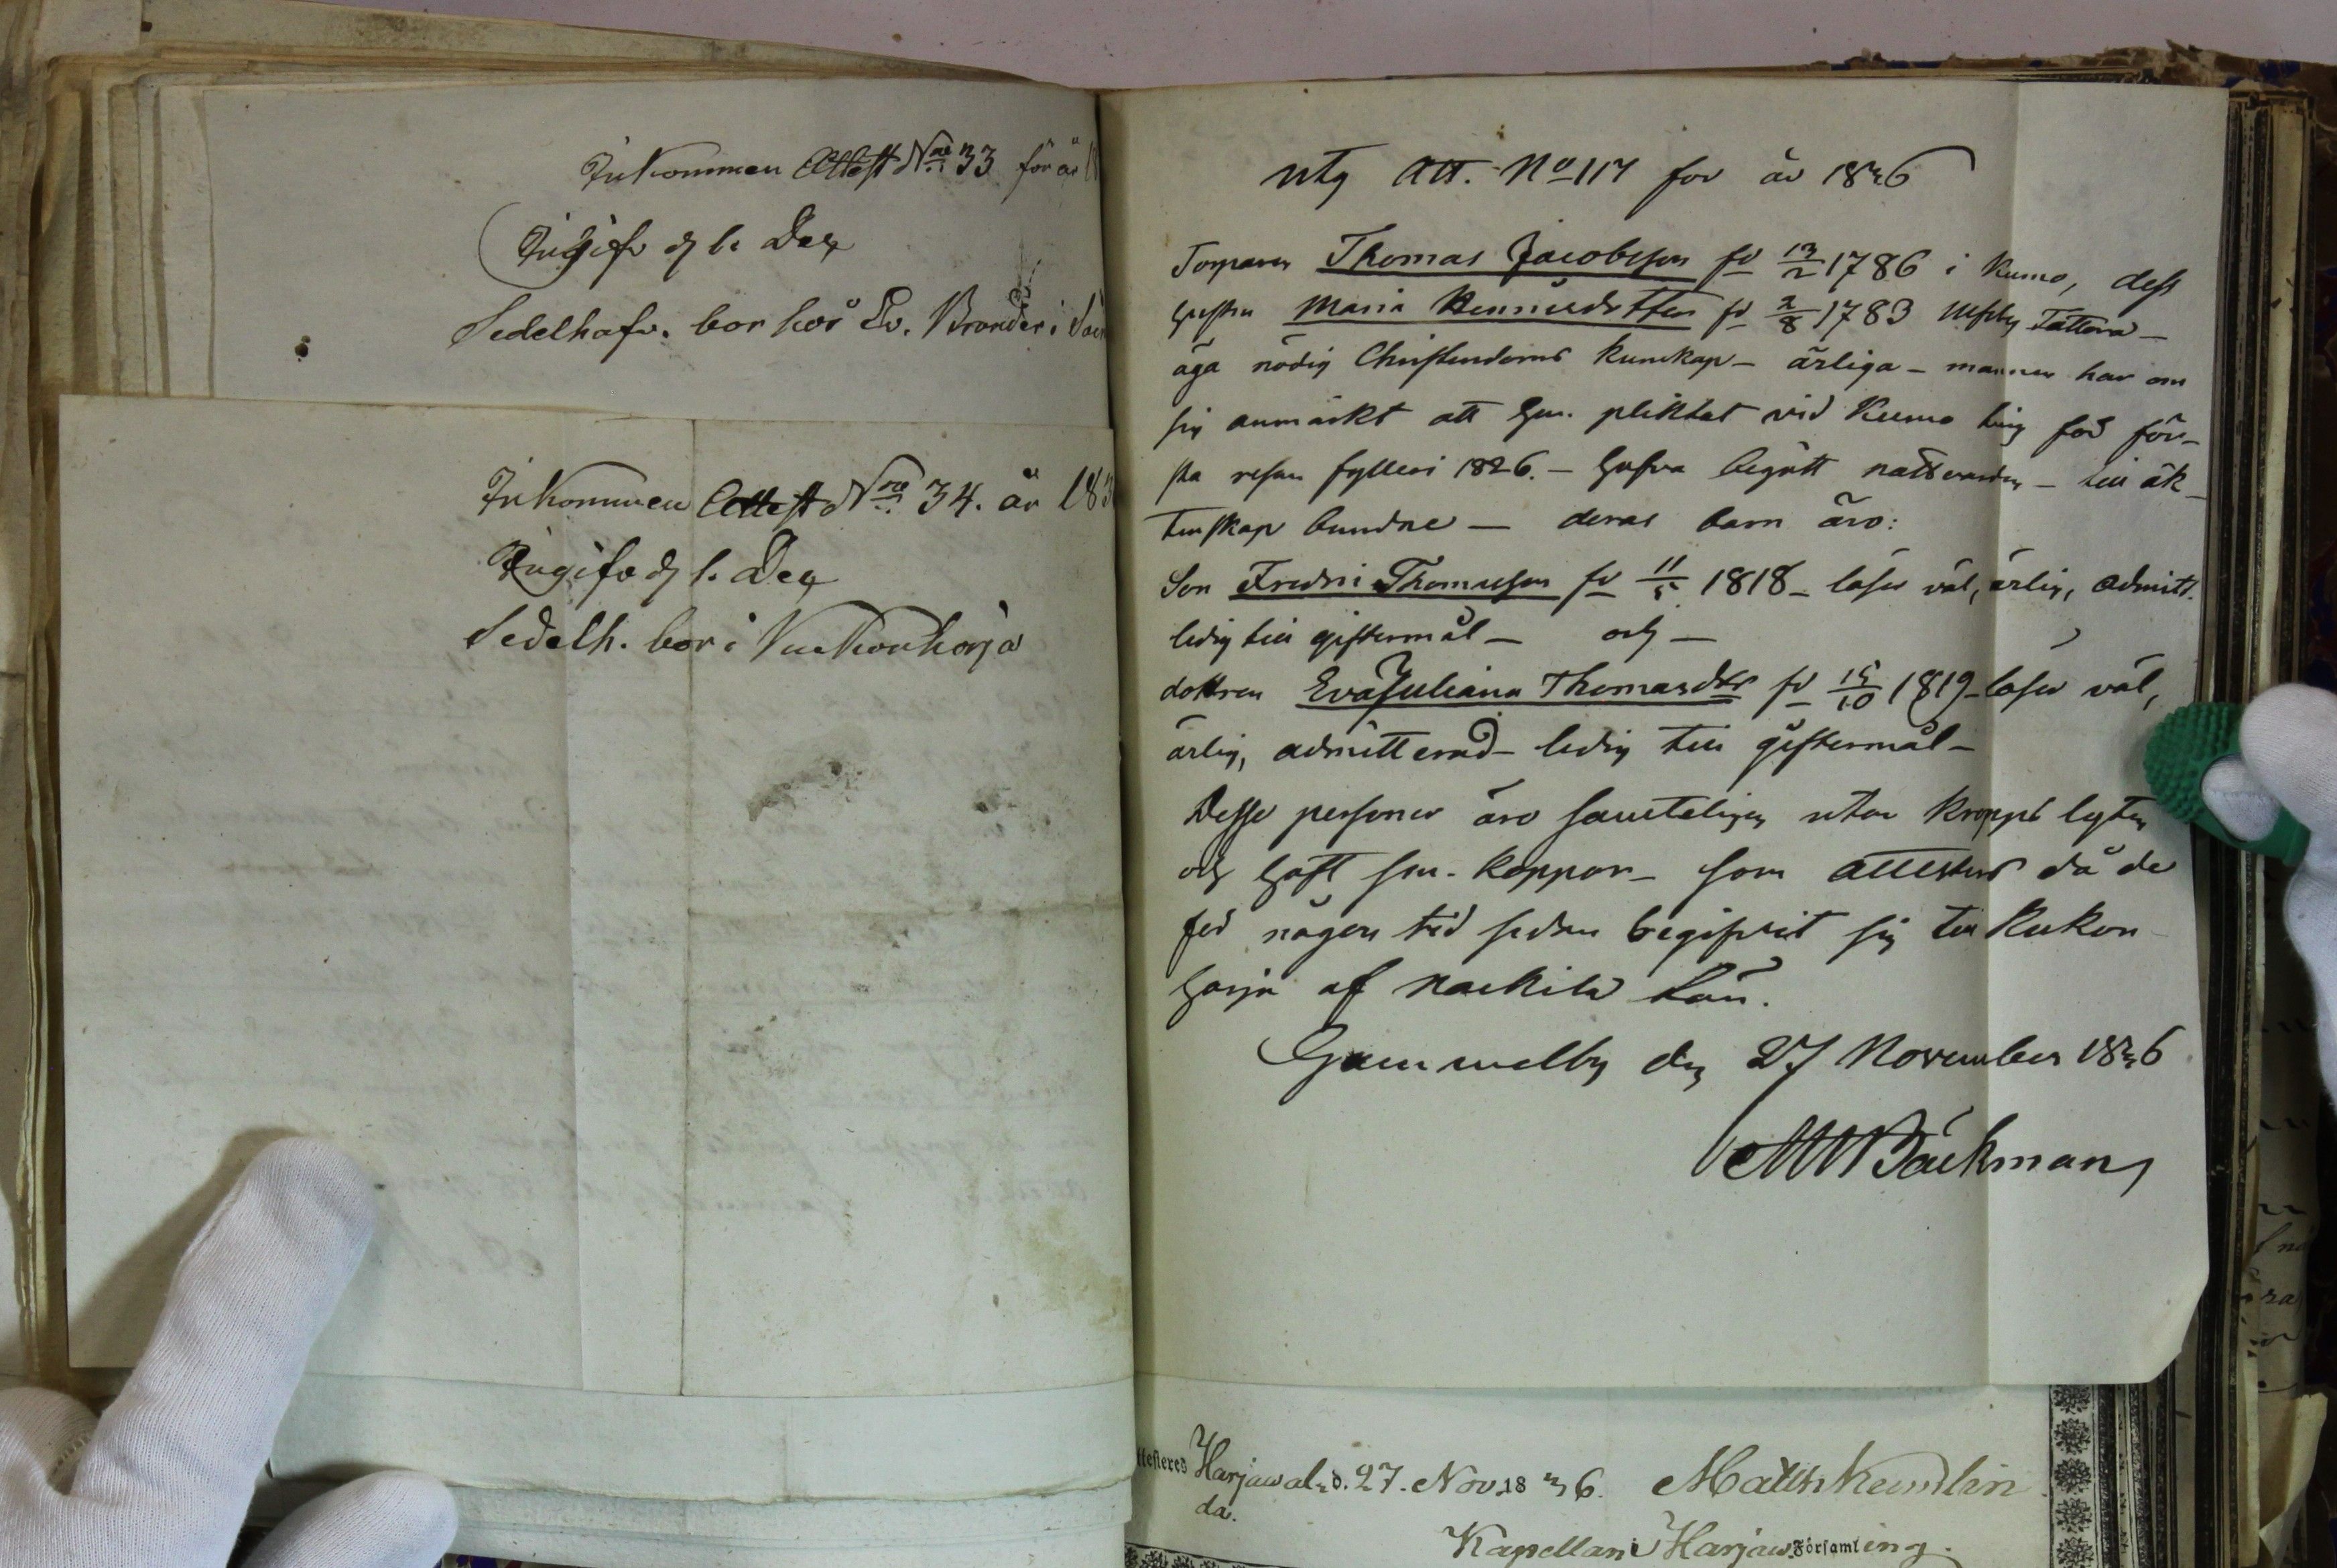 Inkommen Attest Nro 33 för år
Ingifv d 1. Dec
Sedelhafv. bor hos Ev. Brander i
Inkommen Attest Nro 34. år 183
Ingifv d 1. Dec
Sedelh. bor i Kuckonharja
Utg Att. No 117 for år 1836
Torparen Thomas Jacobsson fd 13/2 1786 i Kumo, dess
hustru Maria fd 2/8 1783 Ulfsby Tattara –
äga nödig Christendoms kunskap – ärliga – mannen har om
sig anmärkt att hm. pliktat vid Kumo ting för för-
sta resan fylleri 1826. – hafva begått nattvarden – till äk-
tenskap bundne – deras barn äro:
Son Fredric Thomasson fd 11/5 1818 – läser väl, ärlig, admitt.
ledig till giftermål – och –
dottren Eva Juliana Thomasdtr fd 15/10 1819 – läser väl,
ärlig, admitterad – ledig till giftermål –
Desse personer äro samteligen utan kropps lyten
och haft sm. koppor – som attesteras då de
för någon tid sedan begifvit sig till Kukon
harja af Nackila
Gammelby den 27 November 1836
Bäckman
ttesteres Harjawal- d. 27. Nov 1836. Matth Keml​in
da.
Kapellan i Harjaw. Församling.